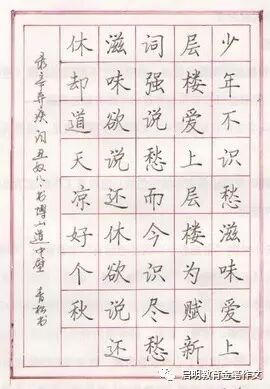 少年不识愁滋味爱上
层楼爱上层楼为赋新
词强说愁而今识尽愁
滋味欲说还休欲说还
休却道天凉好个秋
录辛弃疾词丑奴儿书博山道中壁 青松书
启明教育金笔作文